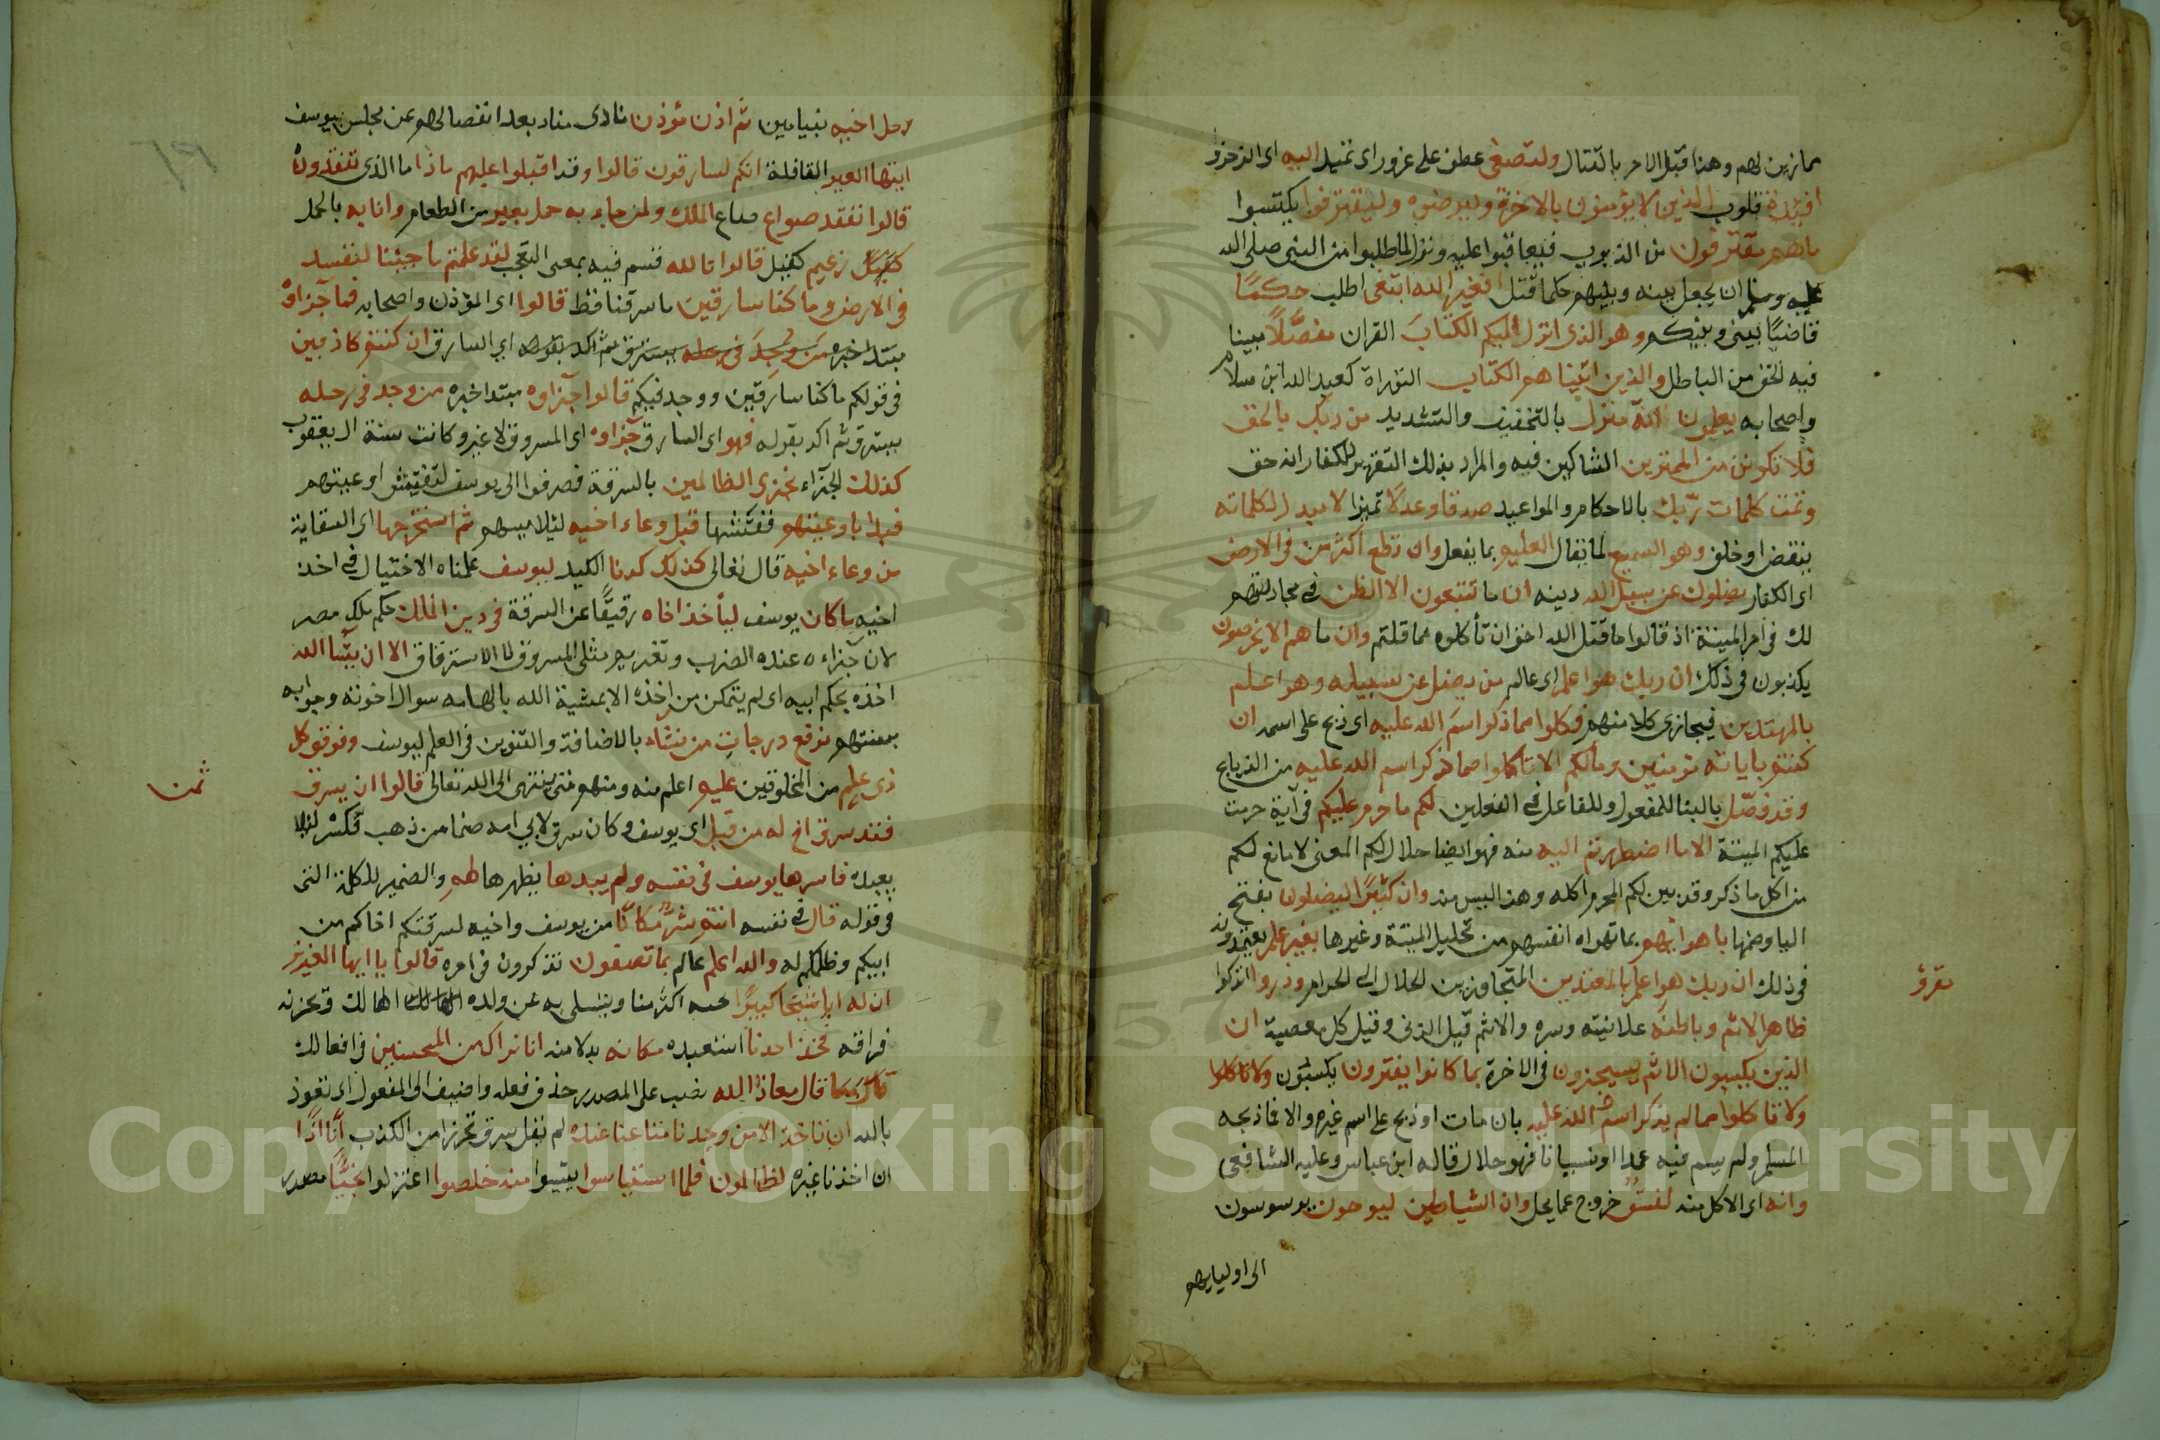 ما زين لهم وهذا قبل الامر بالقتال ولتصغى عطف على غرور اى تميل اليه اى الزخرف
افئدة قلوب الذين لا يؤمنون بالاخرة وليرضوه وليقترفوا يكتسبوا
ما هم مقترفون من الذنوب فيعاقبوا عليه ونزل لما طلبوا من النبي صلى الله
عليه وسلم ان يجعل بينه وبينهم حكما قل افغير الله ابتغى اطلب حكمًا
قاضيًا بينى وبينكم وهو الذى انزل اليكم الكتابَ القران مفصَّلاً مبينا
فيه الحق من الباطل والذين اتيناهم الكتاب التوراة كعبد الله ابن سلام
واصحابه يعلمون انه منزل بالتخفيف والتشديد من ربك بالحق
فلا تكونن من الممترين الشاكين فيه والمراد بذلك التقرير للكفار انه حق
وتمت كلمات ربك بالاحكام والمواعيد صدقا وعدلا تميز لا مبدل لكلماته
بنقض او خلف وهو السميع لما يقال العليم بما يفعل وان تطع اكثر من فى الارض
اى الكفار يضلوك عن سبيل الله دينه ان ما تتبعون الا الظن في مجادلتهم
لك فى امر الميتة اذ قالوا ما قتل الله احق ان تأكلوه مما قتلتم وان ما هم الا يخرصون
يكذبون فى ذلك ان ربك هو اعلم اى عالم من يضل عن سبيله وهو اعلم
بالمهتدين فيجازى كلا منهم فكلوا مما ذكر اسمَ الله عليه اى ذبح على اسمه ان
كنتم باياته مؤمنين ومالكم الا تاكلوا مما ذكر اسم الله عليه من الذبايح
وقد فصّل بالبنا للمفعول وللفاعل في الفعلين لكم ما حرم عليكم فى آية حرمت
عليكم الميتة الا ما اضطررتم اليه منه فهو ايضا حلال لكم المعنى لا مانع لكم
من اكل ما ذكر وقد بين لكم المحرم اكله وهذا ليس منه وان كثيرًا ليضلون بفتح
اليا وضمها باهوائهم بما تهواه انفسهم من تحليل الميتة وغيرها بغير علم يعتمدونه
فى ذلك ان ربك هو اعلم بالمعتدين المتجاوزين الحلال الى الحرام وذروا اتركوا
ظاهر الاثم وباطنه علانيته وسره والاثم قيل الزنى وقيل كل معصية ان
الذين يكسبون الاثم سيجزون فى الاخرة بما كانوا يقترفون يكسبون ولا تاكلوا
ولا تا كلوا مما لم يذكر اسم الله عليه بان مات او ذبح على اسم غيره والا فما ذبحه
المسلم ولم يسم فيه عمدا او نسيانا فهو حلال قاله ابن عباس وعليه الشافعى
وانه اى الاكل منه لفسق خروج عما يحل وان الشياطين ليوحون يوسوسون
الى اوليايهم
رحل اخيه بنيامين ثم اذن مؤذن نادى مناد بعد انفصالهم عن مجلس يوسف
ايتها العير القافلة انكم لسارقون قالوا وقد اقبلوا عليهم ماذا ما الذى تفقدون
قالوا نفقد صواع صاع الملك ولمن جاء به حمل بعير من الطعام وانا به بالحمل
كفيل زعيم كفيل قالوا تالله قسم فيه بمعنى التعجب لقد علمتم ما جئنا لنفسد
فى الارض وما كنا سارقين ما سرقنا قط قالوا اى المؤذن واصحابه فما جزاؤه
مبتدا خبره من وُجِدَ فى رحله يسترق ثم اكد بقوله اي السارق ان كنتم كاذبين
فى قولكم ما كنا سارقين ووجد فيكم قالوا جزاؤه مبتدا خبره من وجد فى رحله
يسترق ثم اكد بقوله فهو اى السارق جزاؤه اى المسروق لا غير وكانت سنة ال يعقوب
كذلك الجزاء نجزى الظالمين بالسرقة فصرفوا الى يوسف لتفتيش اوعيتهم
فبدا باوعيتهم ففتشها قبل وعاء اخيه لئلا يتهم ثم استخرجها اى السقاية
من وعاء اخيه قال تعالى كذلك كدنا الكيد ليوسف علمناه الاحتيال فى اخذ
اخيه ما كان يوسف ليأخذ اخاه رقيقًا عن السرقة فى دين الملك حكم ملك مصر
لان جزاءه عنده الضرب وتغريم مثلى المسروق لا الاسترقاق الا ان يشا الله
اخذه بحكم ابيه اى لم يتمكن من اخذه الا بمشية الله بالهامه سوال اخوته وجوابه
بسنتهم نرفع درجاتٍ من نشاء بالاضافة والتنوين فى العلم ليوسف وفوق كل
ذى علم من المخلوقين عليم اعلم منه ومنهم متى ينتهى الى الله تعالى قالوا ان يسرق
فقد سرق اخ له من قبل اى يوسف وكان سرق لابي امه صنما من ذهب فكسره لئلا
يعبده فاسرها يوسف فى نفسه ولم يبدها يظهرها لهم والضمير للكلمة التى
فى قوله قال فى نفسه انتم شر مكانًا من يوسف واخيه لسرقتكم اخاكم من
ابيكم وظلمكم له والله اعلم عالم بما تصفون تذكرون فى امره قالوا يا ايها العزيز
ان له ابا شيخا كبيرًا يحبه اكثر منا ويتسلى به عن ولده الهالك ويحزنه
فراقه فخذ احدنا استعبده مكانه بدلا منه انا نراك من المحسنين فى افعالك
قال معاذ الله نصب على المصدر حذف فعله واضيف الى المفعول اى نعوذ
بالله ان ناخذ الا من وجدنا متاعنا عنده لم يقل سرق تحرزا من الكذب انّا اذًا
ان اخذنا غيره لظالمون فلما استياسوا يئسوا منه خلصوا اعتزلوا نجيًّا مصدر
ثمن
Copyright © King Saud University
1957